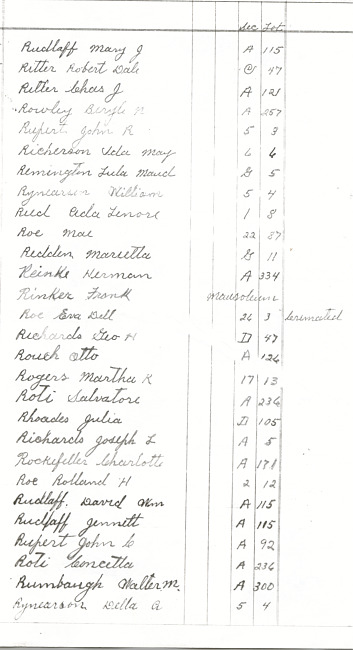 Sec Lot
Rudlaff Mary J A 115
Ritter Robert Dale @ 47
Ritter Chas J A 121
Rowley A 257
Rupert John R 5 3
Richerson Ida May 6 6
Remington Lula Maud G 5
Rynearson William 5 4
Reed Ada Lenore 1 8
Roe Mae 22 87
Redden Marietta G 11
Reinke Herman A 334
Rinker Frank Mausoleum
Roe Eva Dell 26 3 cremated
Richards Geo H D 47
Rouch Otto A 126
Rogers Martha K 17 13
Roti Salvatore A 236
Rhoades Julia D 105
Richards Joseph L A 5
Rockefeller Charlotte A 171
Roe Rolland H 2 12
Rudlaff, David Wm A 115
Rudlaff Jennett A 115
Rupert John C A 92
Roti Concetta A 236
Rumbaugh Walter M. A 300
Rynearson Della A 5 4